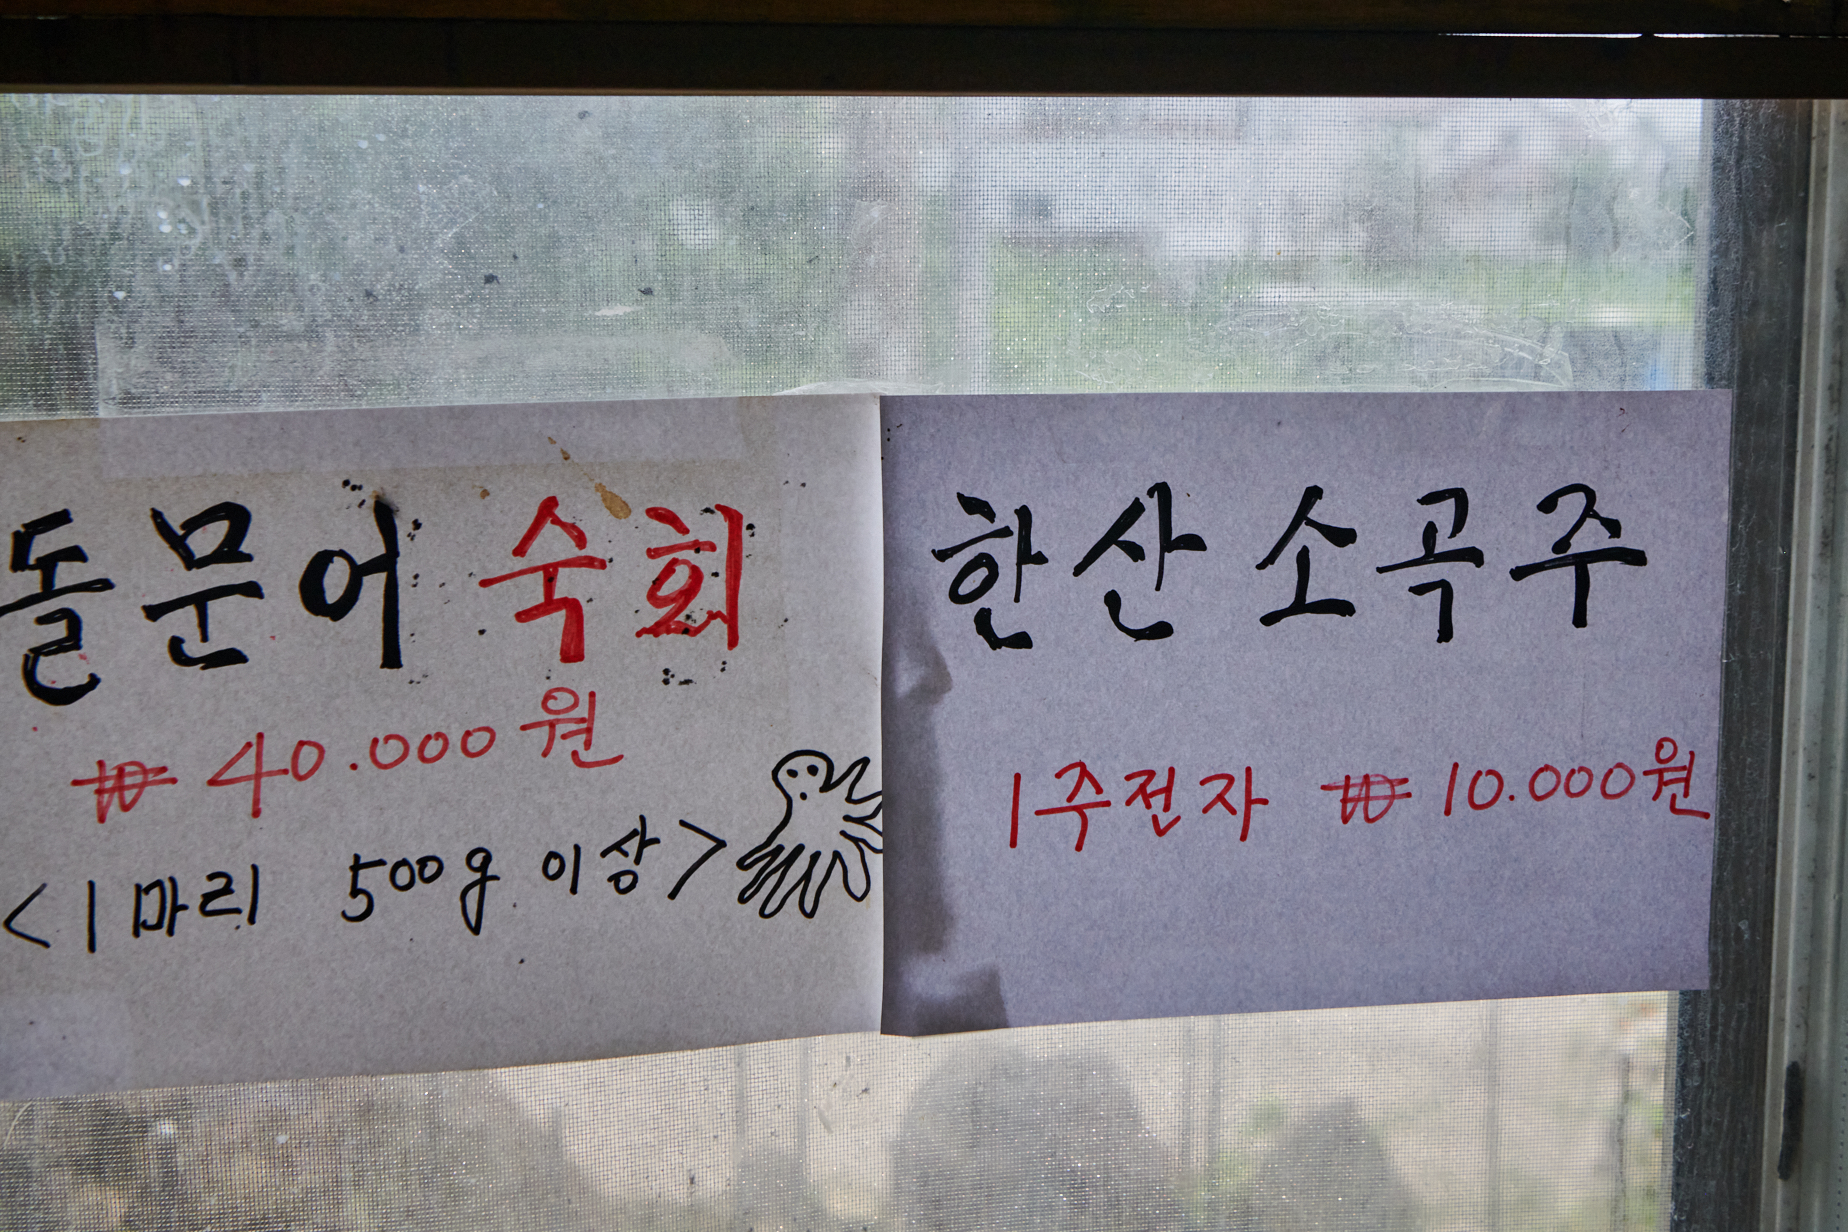 돌문어 숙회
₩ 40.000원
<1마리 500g 이상>
한산 소곡주
1주전자 ₩ 10.000원